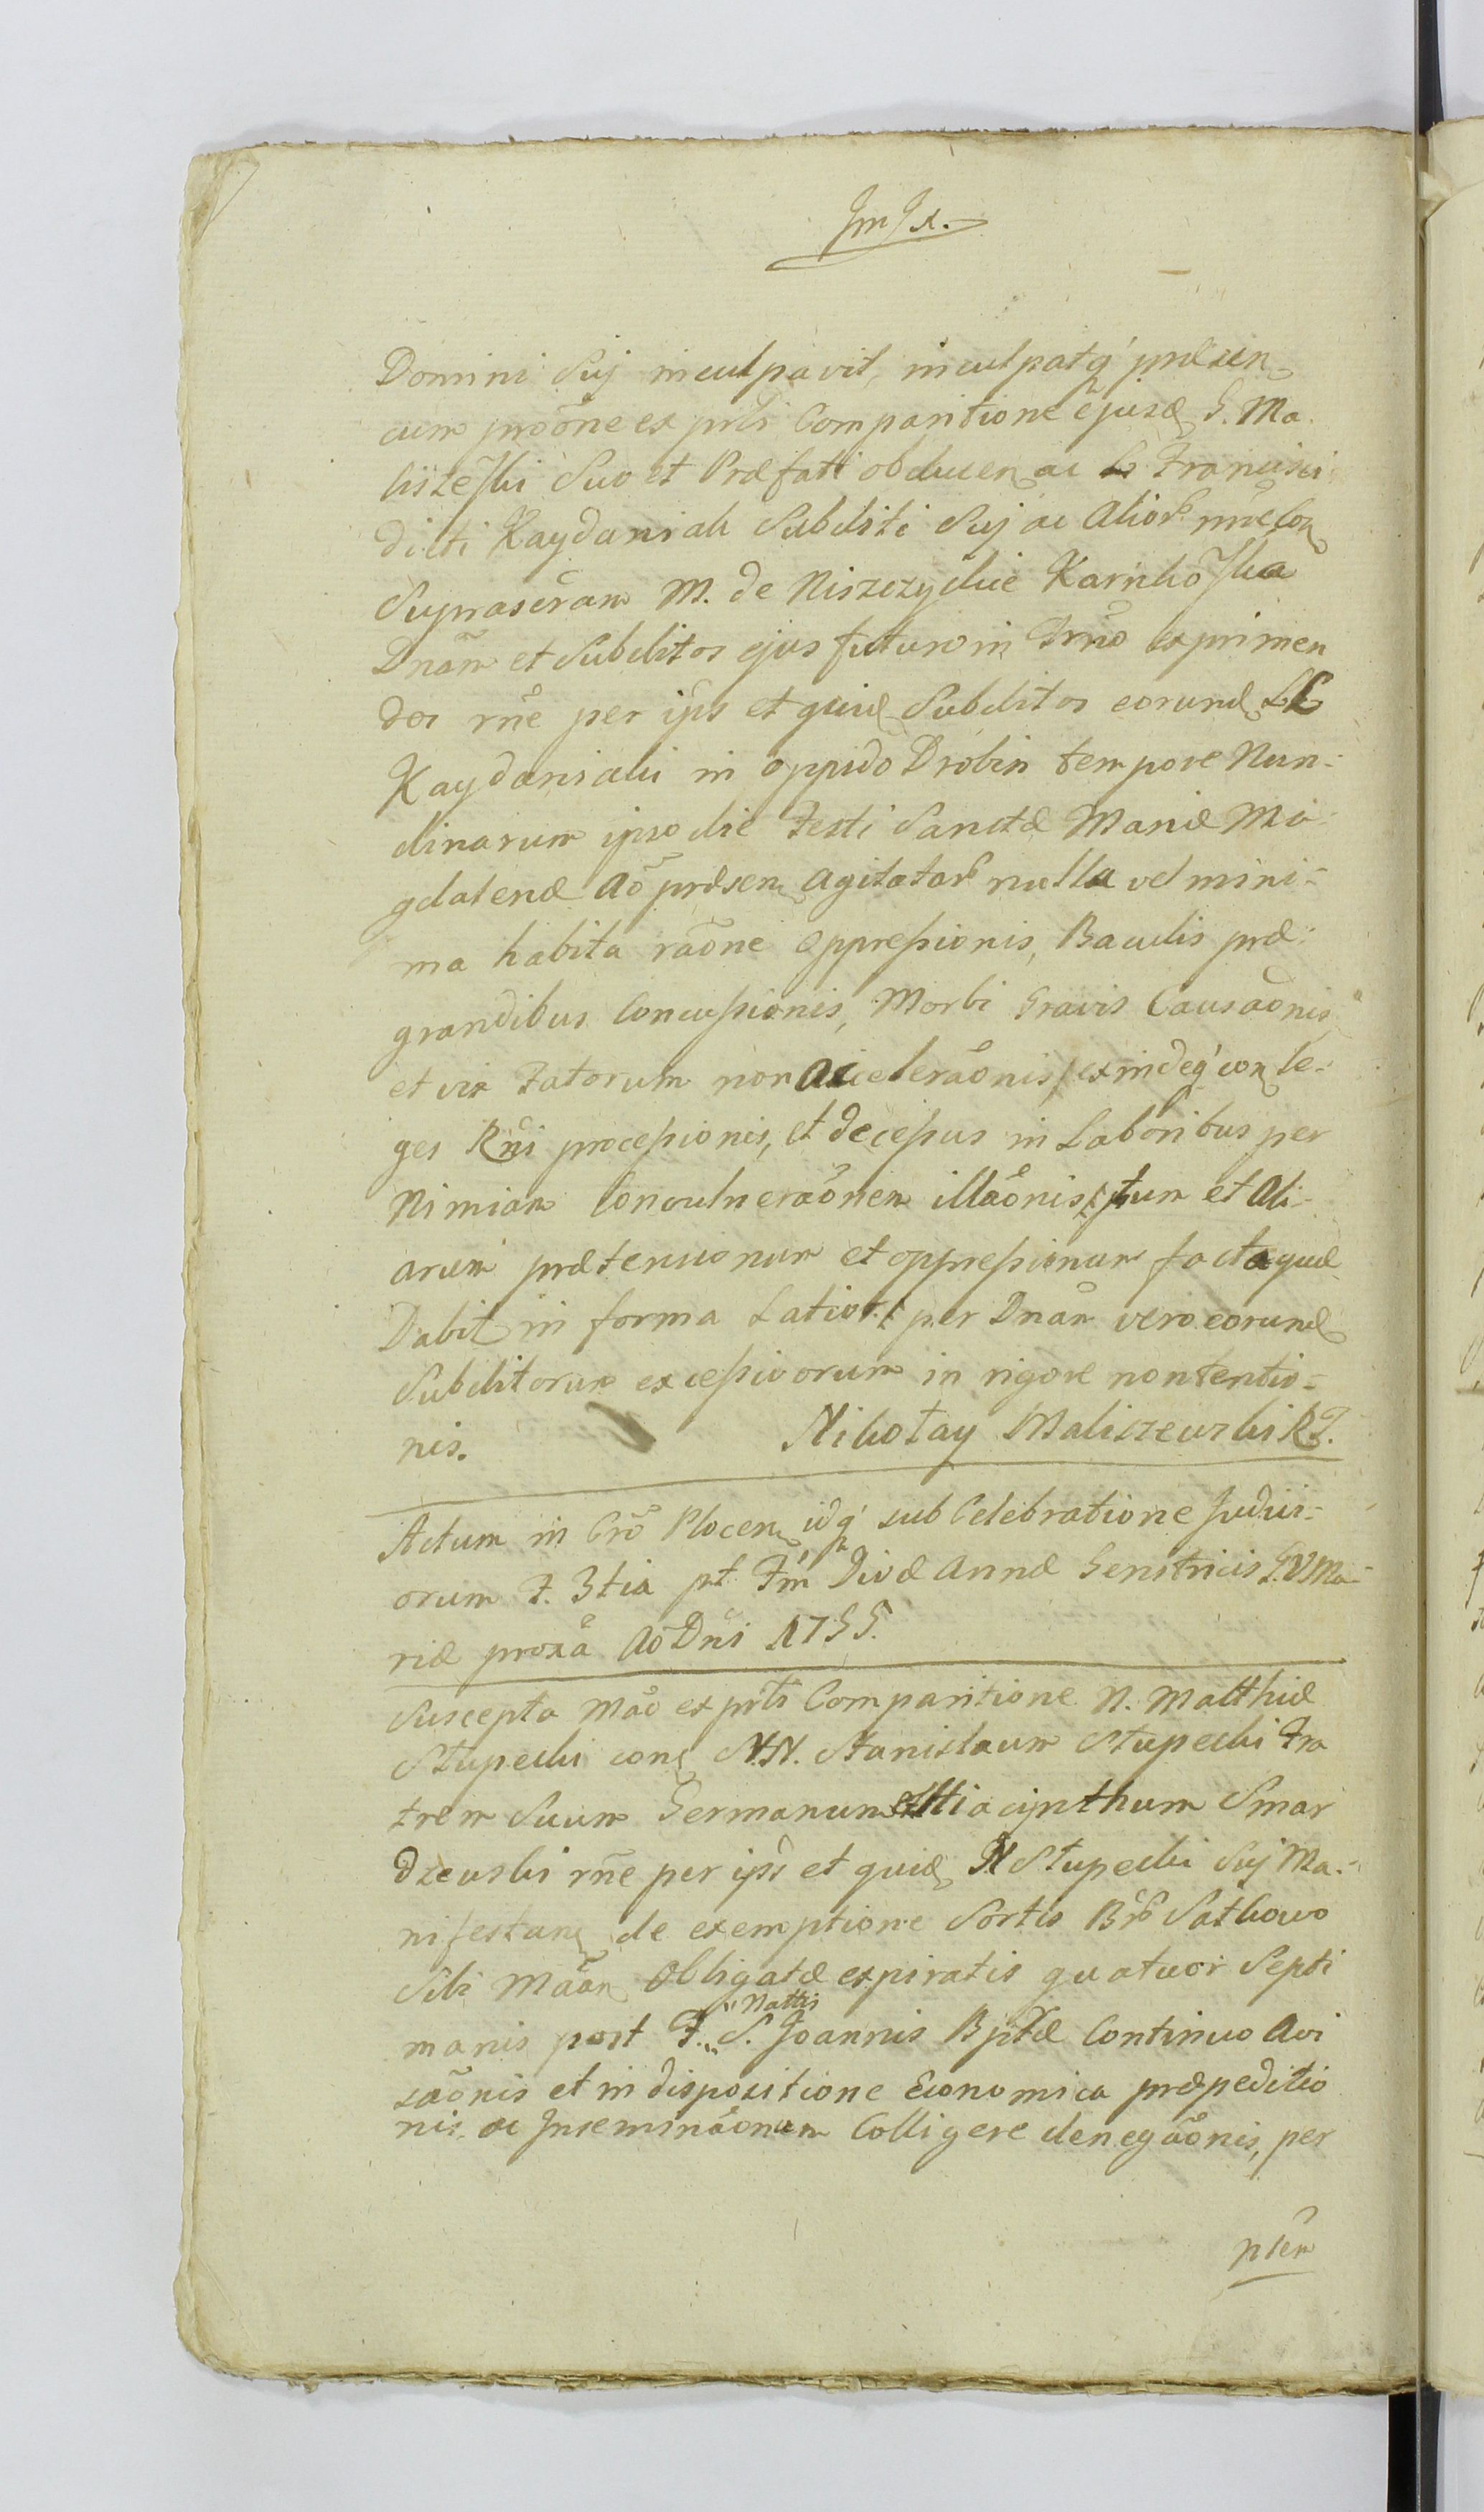 Domini Suj inculpavit, inculpatq́ præsen
cum proõne ex prti Comparitione ejusd G. Ma
liszeski Suo et Præfati obducen ac Francisci
dicti Kaydaniak Subditi Suj ac Alior nrie con
Suprascram M. de Niszczyckie Karnkoska
Dnãm et Subditos ejus futuro in Trno exprimen
dos rñe per ips et quid Subditos eorund LL
Kaydaniaki in oppido Drobin tempore Nun-
dinarum ipso die Festi Sanctæ Mariæ Ma-
gdalenæ Aõ præsen agitatar nulla vel mini-
ma habita raõne oppressionis, Baculis præ-
grandibus Concussionis, Morbi Gravis Causaõnis
et vix Fatorum non Acceleraõnis, exindeq́ con le-
ges Rni processionis, et decessus in Laboribus per
Nimiam Convulneraõnem illaõnis, ptum et Ali-
arum prætensionum et oppressionum facta quæ
Dabit in forma Latior. per Dnãm vero eorund
Subditorum excessivorum in rigore nontentio-
nis. Nikołay Maliszewski RF.
Actum in Cro Plocen idq́ sub Celebratione Judici-
orum F. 3tia pt Fm Divæ Annæ Genitricis B.V. Ma-
riæ proxa Aõ Dni 1755.
Suscepta Mao ex prti Comparitione N. Matthiæ
Stupecki con NN. Stanislaum Stupecki Fra
trem Suum Germanum et Hiacynthum Smar
dzewski rñe per ips et quid N Stupecki Suj Ma-
nifestan de exemptione Sortis Br Satkowo
Sibi Maan Obligatæ expiratis quatuor Septi
manis post F. "Nattis" S. Joannis Bptæ Continuo Avi
saõnis et in dispositione Economica præpeditio
nis, ac Inseminaõnem Colligere denegaõnis, per